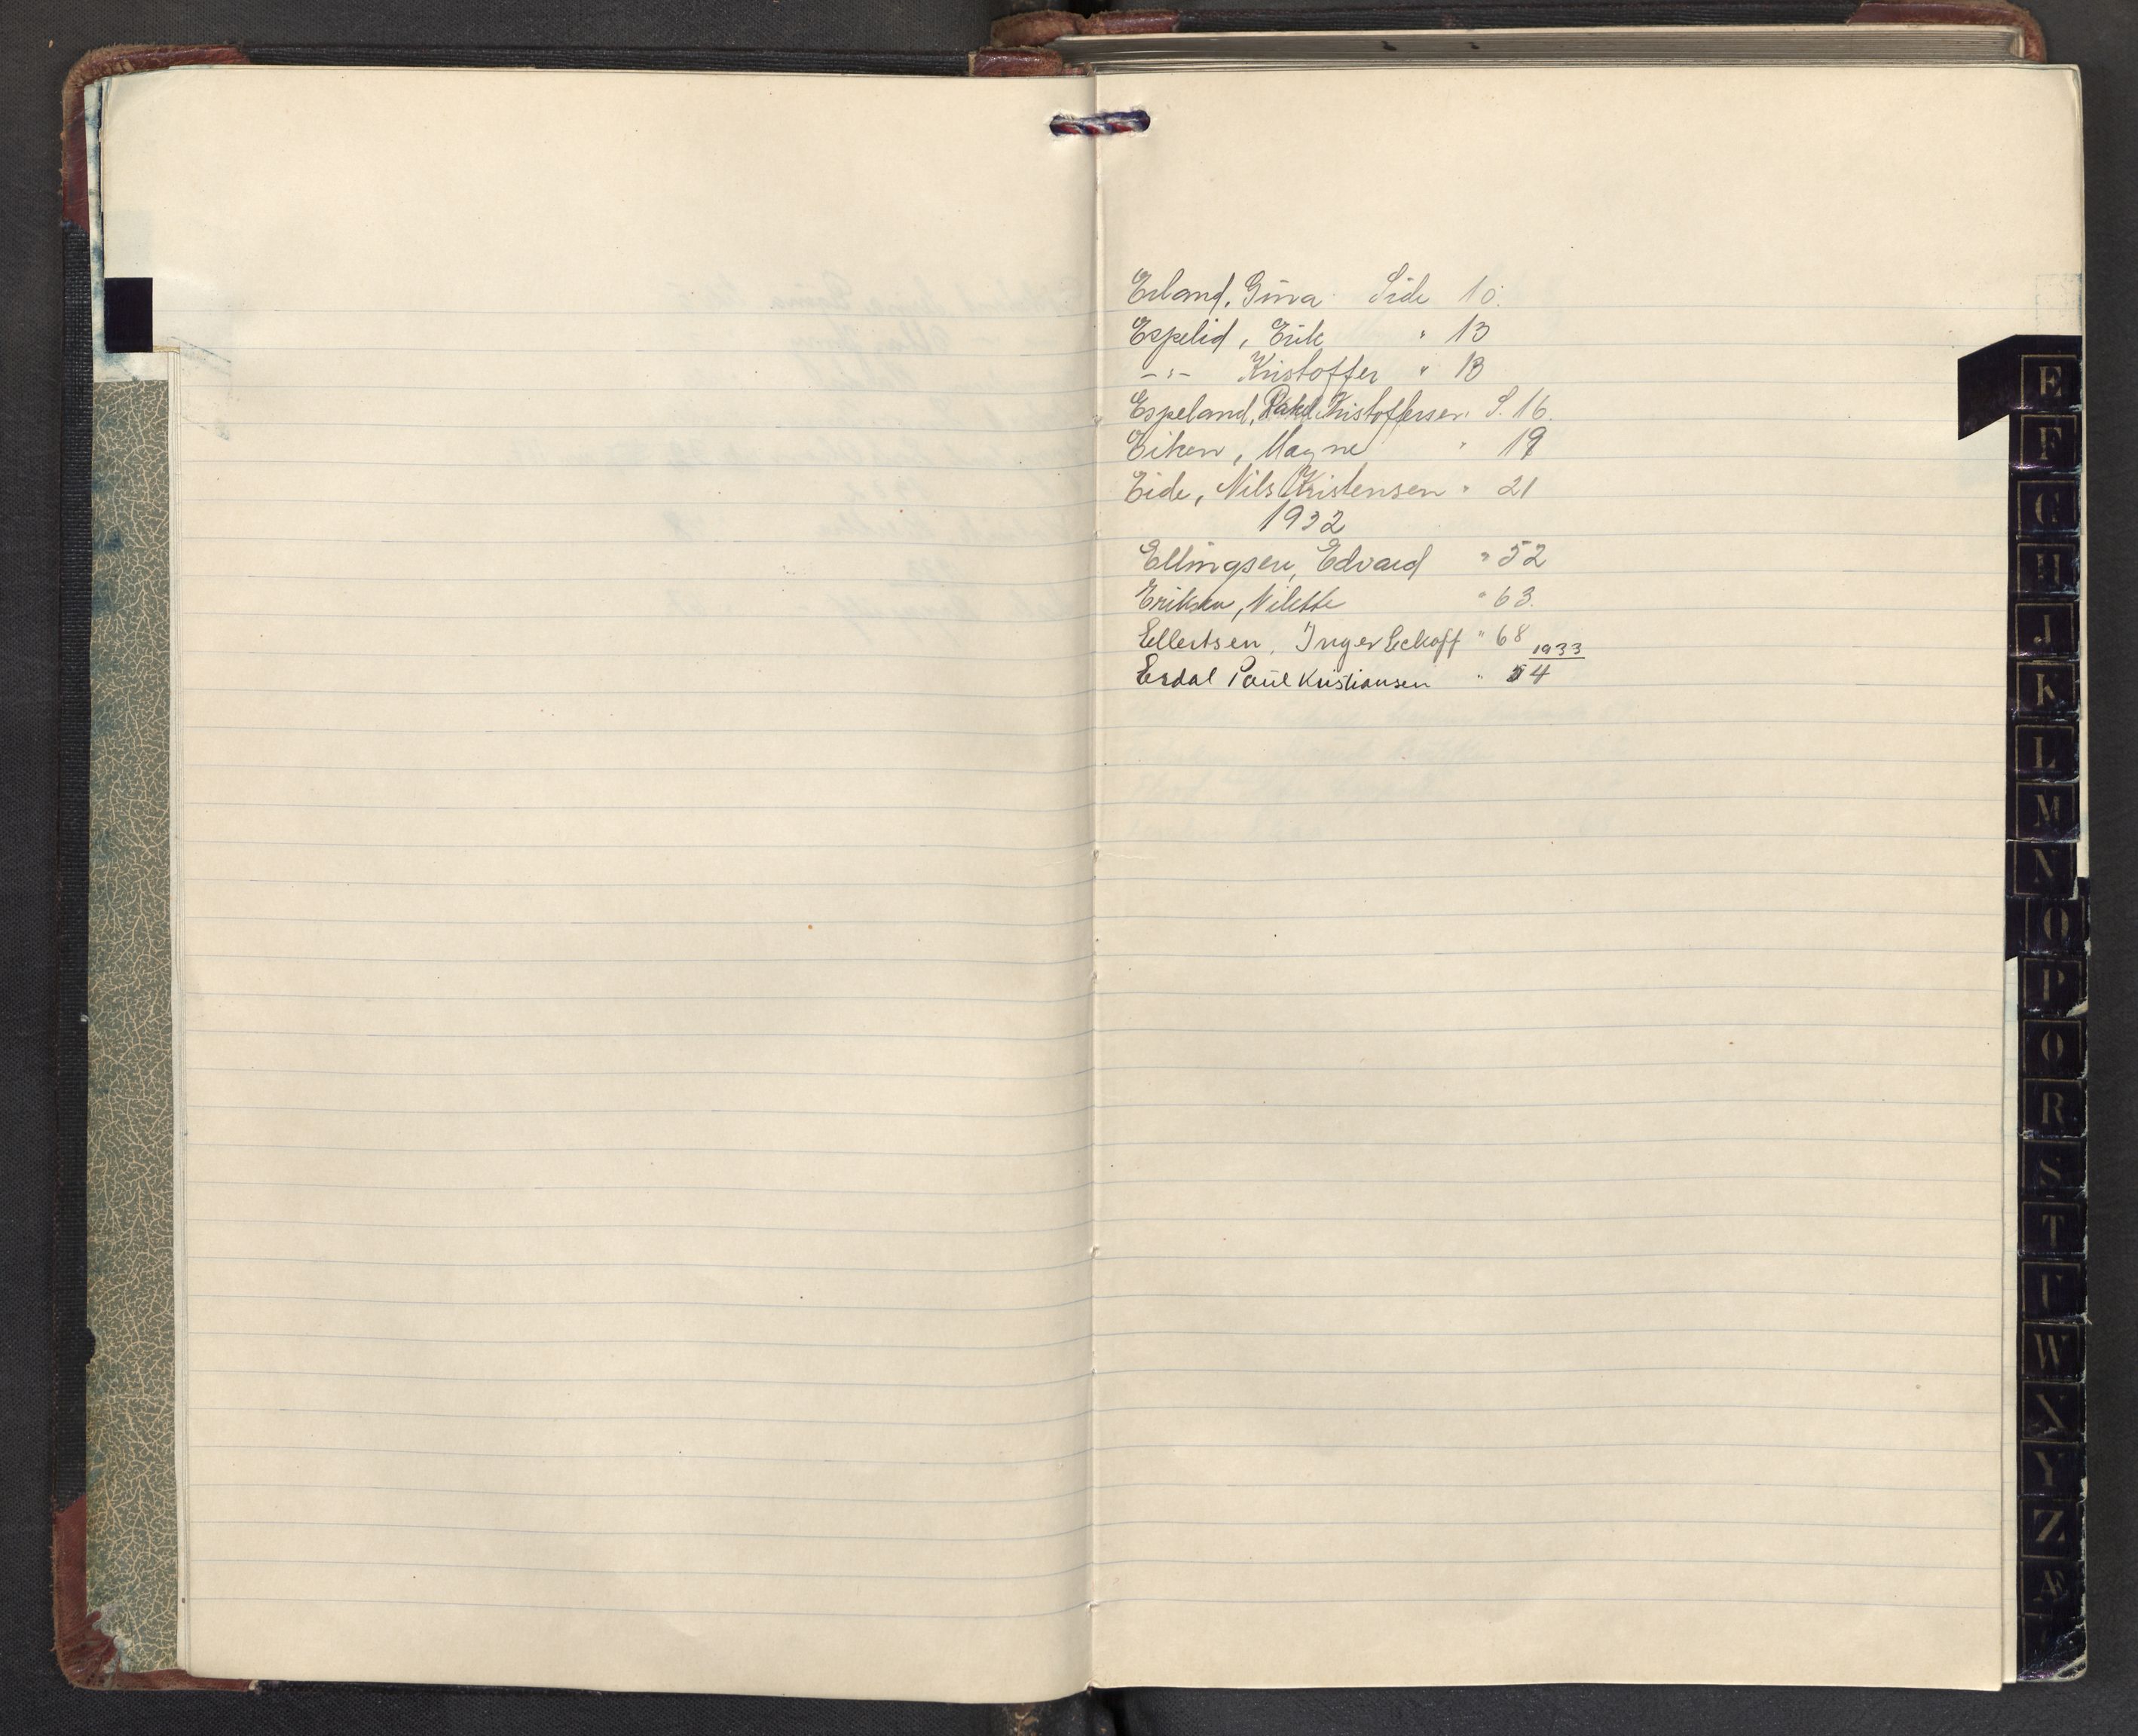 Erland, Gina Side 10.
Espelid, Erik " 13
-"- Kristoffer " 13
Espeland, Kristoffersen S. 16.
Eiken, Magne " 19
Eide, Nils Kristensen " 21
1932
Ellingsen, Edvard " 52
Eriksen, Nilette " 63.
Ellertsen, Inger Eckoff " 68
1933
Erdal Paul Kristiansen " 54
E
F
G
H
J
K
L
M
N
O
P
Q
R
S
T
U
W
X
Y
Z
Æ